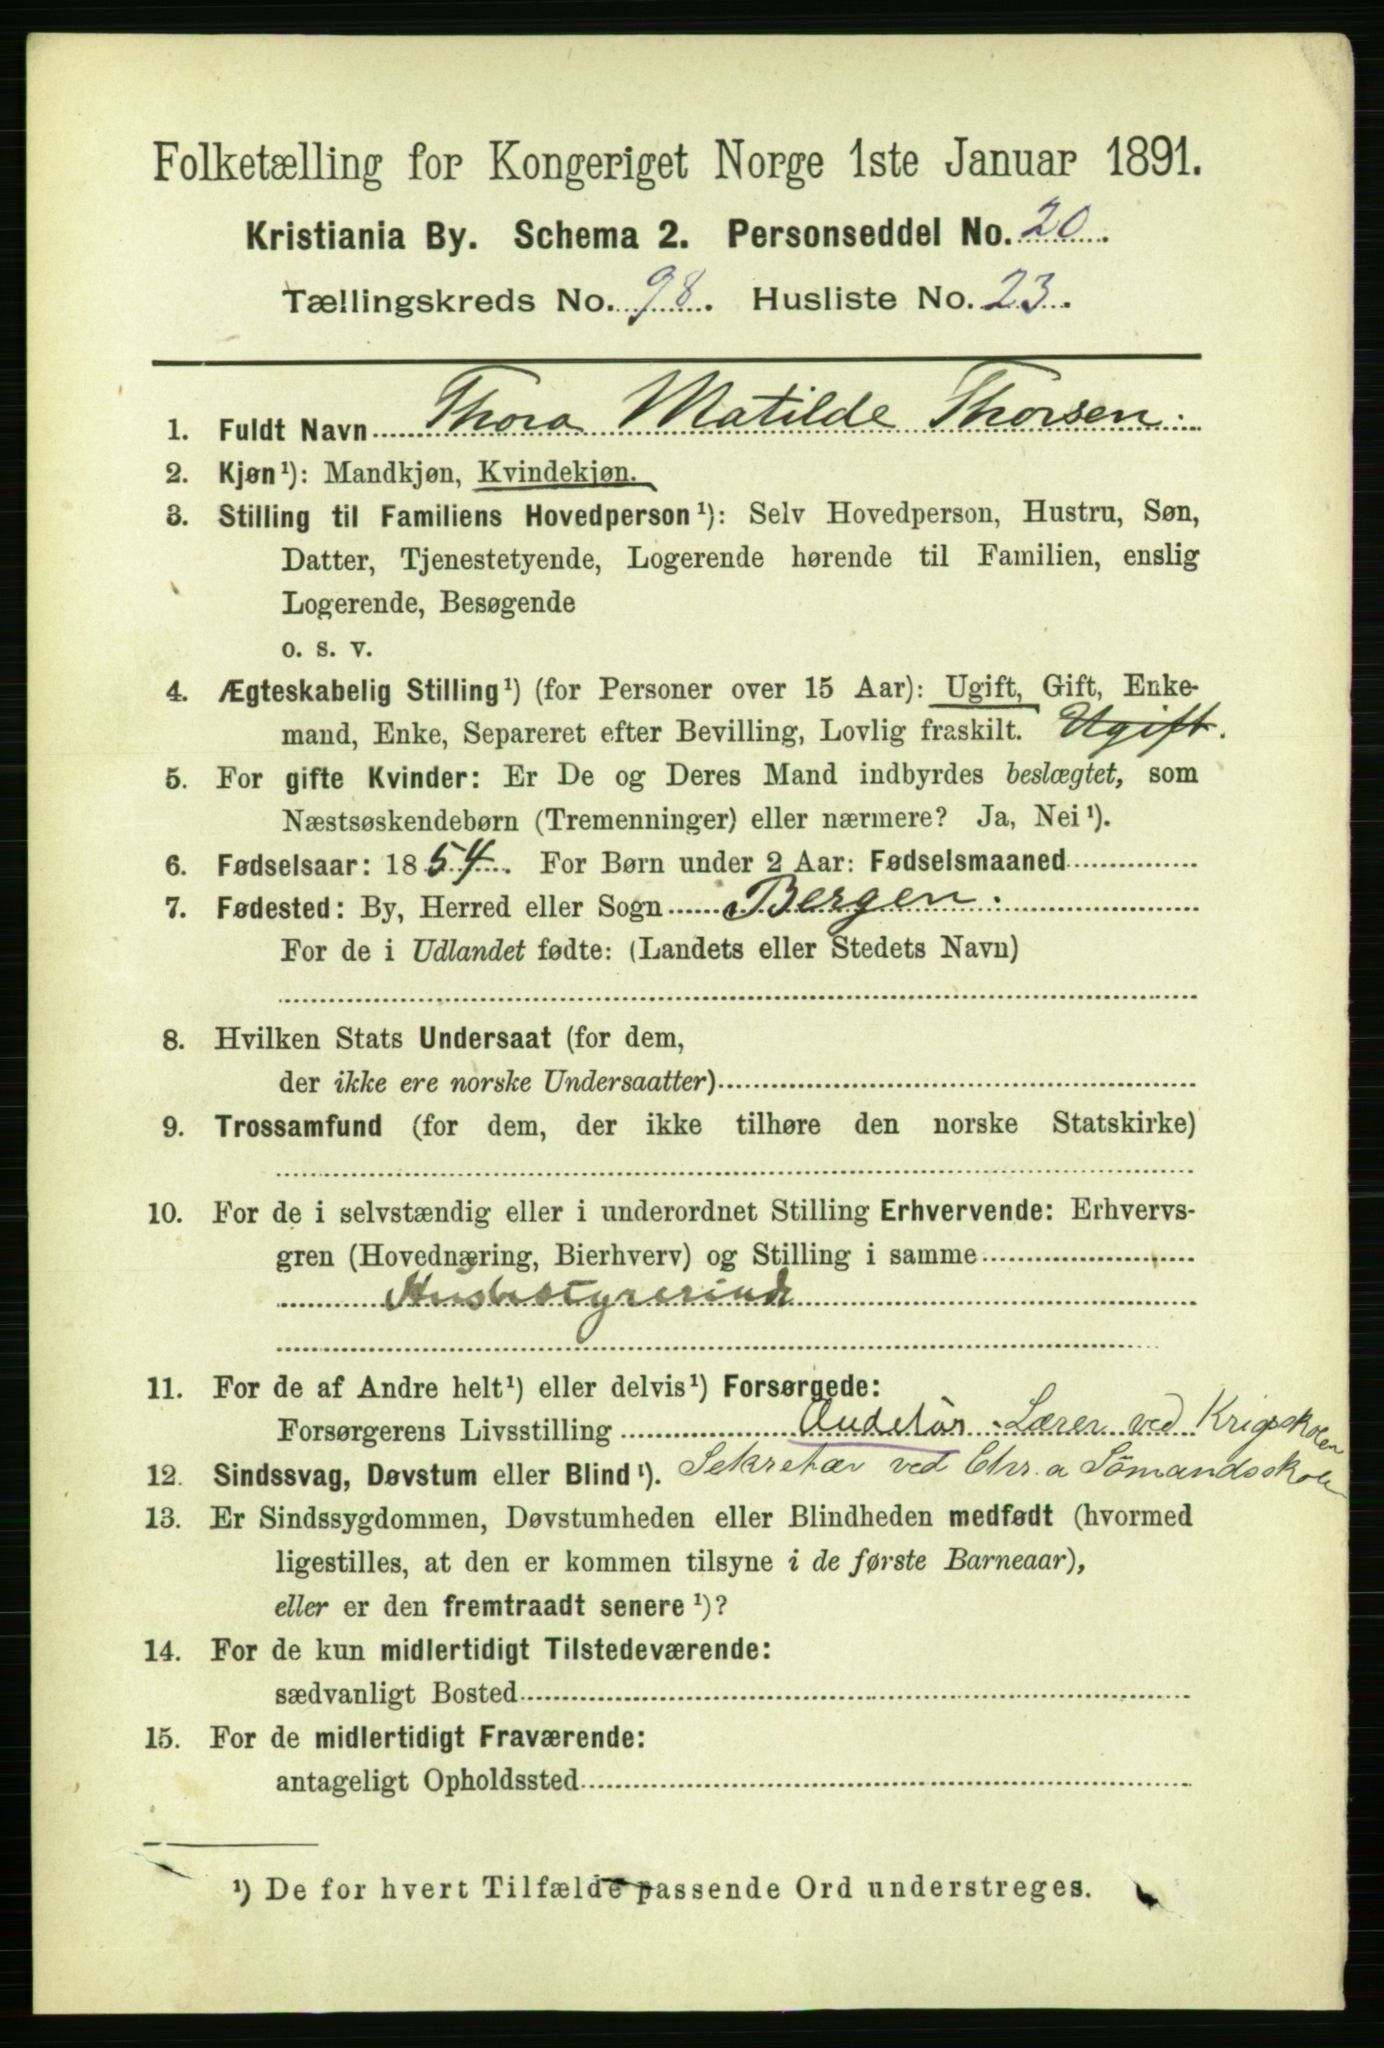 Folketælling for Kongeriget Norge 1ste Januar 1891.
Kristiania By. Schema 2. Personseddel No. 20.
Tællingskreds No. 98. Husliste No. 23.
1. Fuldt Navn Thora Matilde Thorsen.
2. Kjøn¹): Mandkjøn, Kvindekjøn.
3. Stilling til Familiens Hovedperson¹): Selv Hovedperson, Hustru, Søn,
Datter, Tjenestetyende, Logerende hørende til Familien, enslig
Logerende, Besøgende
o. s. v.
4. Ægteskabelig Stilling¹) (for Personer over 15 Aar): Ugift, Gift, Enke-
mand, Enke, Separeret efter Bevilling, Lovlig fraskilt. Ugift.
5. For gifte Kvinder: Er De og Deres Mand indbyrdes beslægtet, som
Næstsøskendebørn (Tremenninger) eller nærmere? Ja, Nei¹).
6. Fødselsaar: 1854. For Børn under 2 Aar: Fødselsmaaned
7. Fødested: By, Herred eller Sogn Bergen.
For de i Udlandet fødte: (Landets eller Stedets Navn)
8. Hvilken Stats Undersaat (for dem,
der ikke ere norske Undersaatter)
9. Trossamfund (for dem, der ikke tilhøre den norske Statskirke)
10. For de i selvstændig eller i underordnet Stilling Erhvervende: Erhvervs-
gren (Hovednæring, Bierhverv) og Stilling i samme
Husbestyrerinde
11. For de af Andre helt¹) eller delvis¹) Forsørgede:
Forsørgerens Livsstilling Auditør. Lærer ved Krigsskolen
12. Sindssvag, Døvstum eller Blind¹). Sekretær ved Chr.a Sömandsskole
13. Er Sindssygdommen, Døvstumheden eller Blindheden medfødt (hvormed
ligestilles, at den er kommen tilsyne i de første Barneaar),
eller er den fremtraadt senere¹)?
14. For de kun midlertidigt Tilstedeværende:
sædvanligt Bosted
15. For de midlertidigt Fraværende:
antageligt Opholdssted
¹) De for hvert Tilfælde passende Ord understreges.